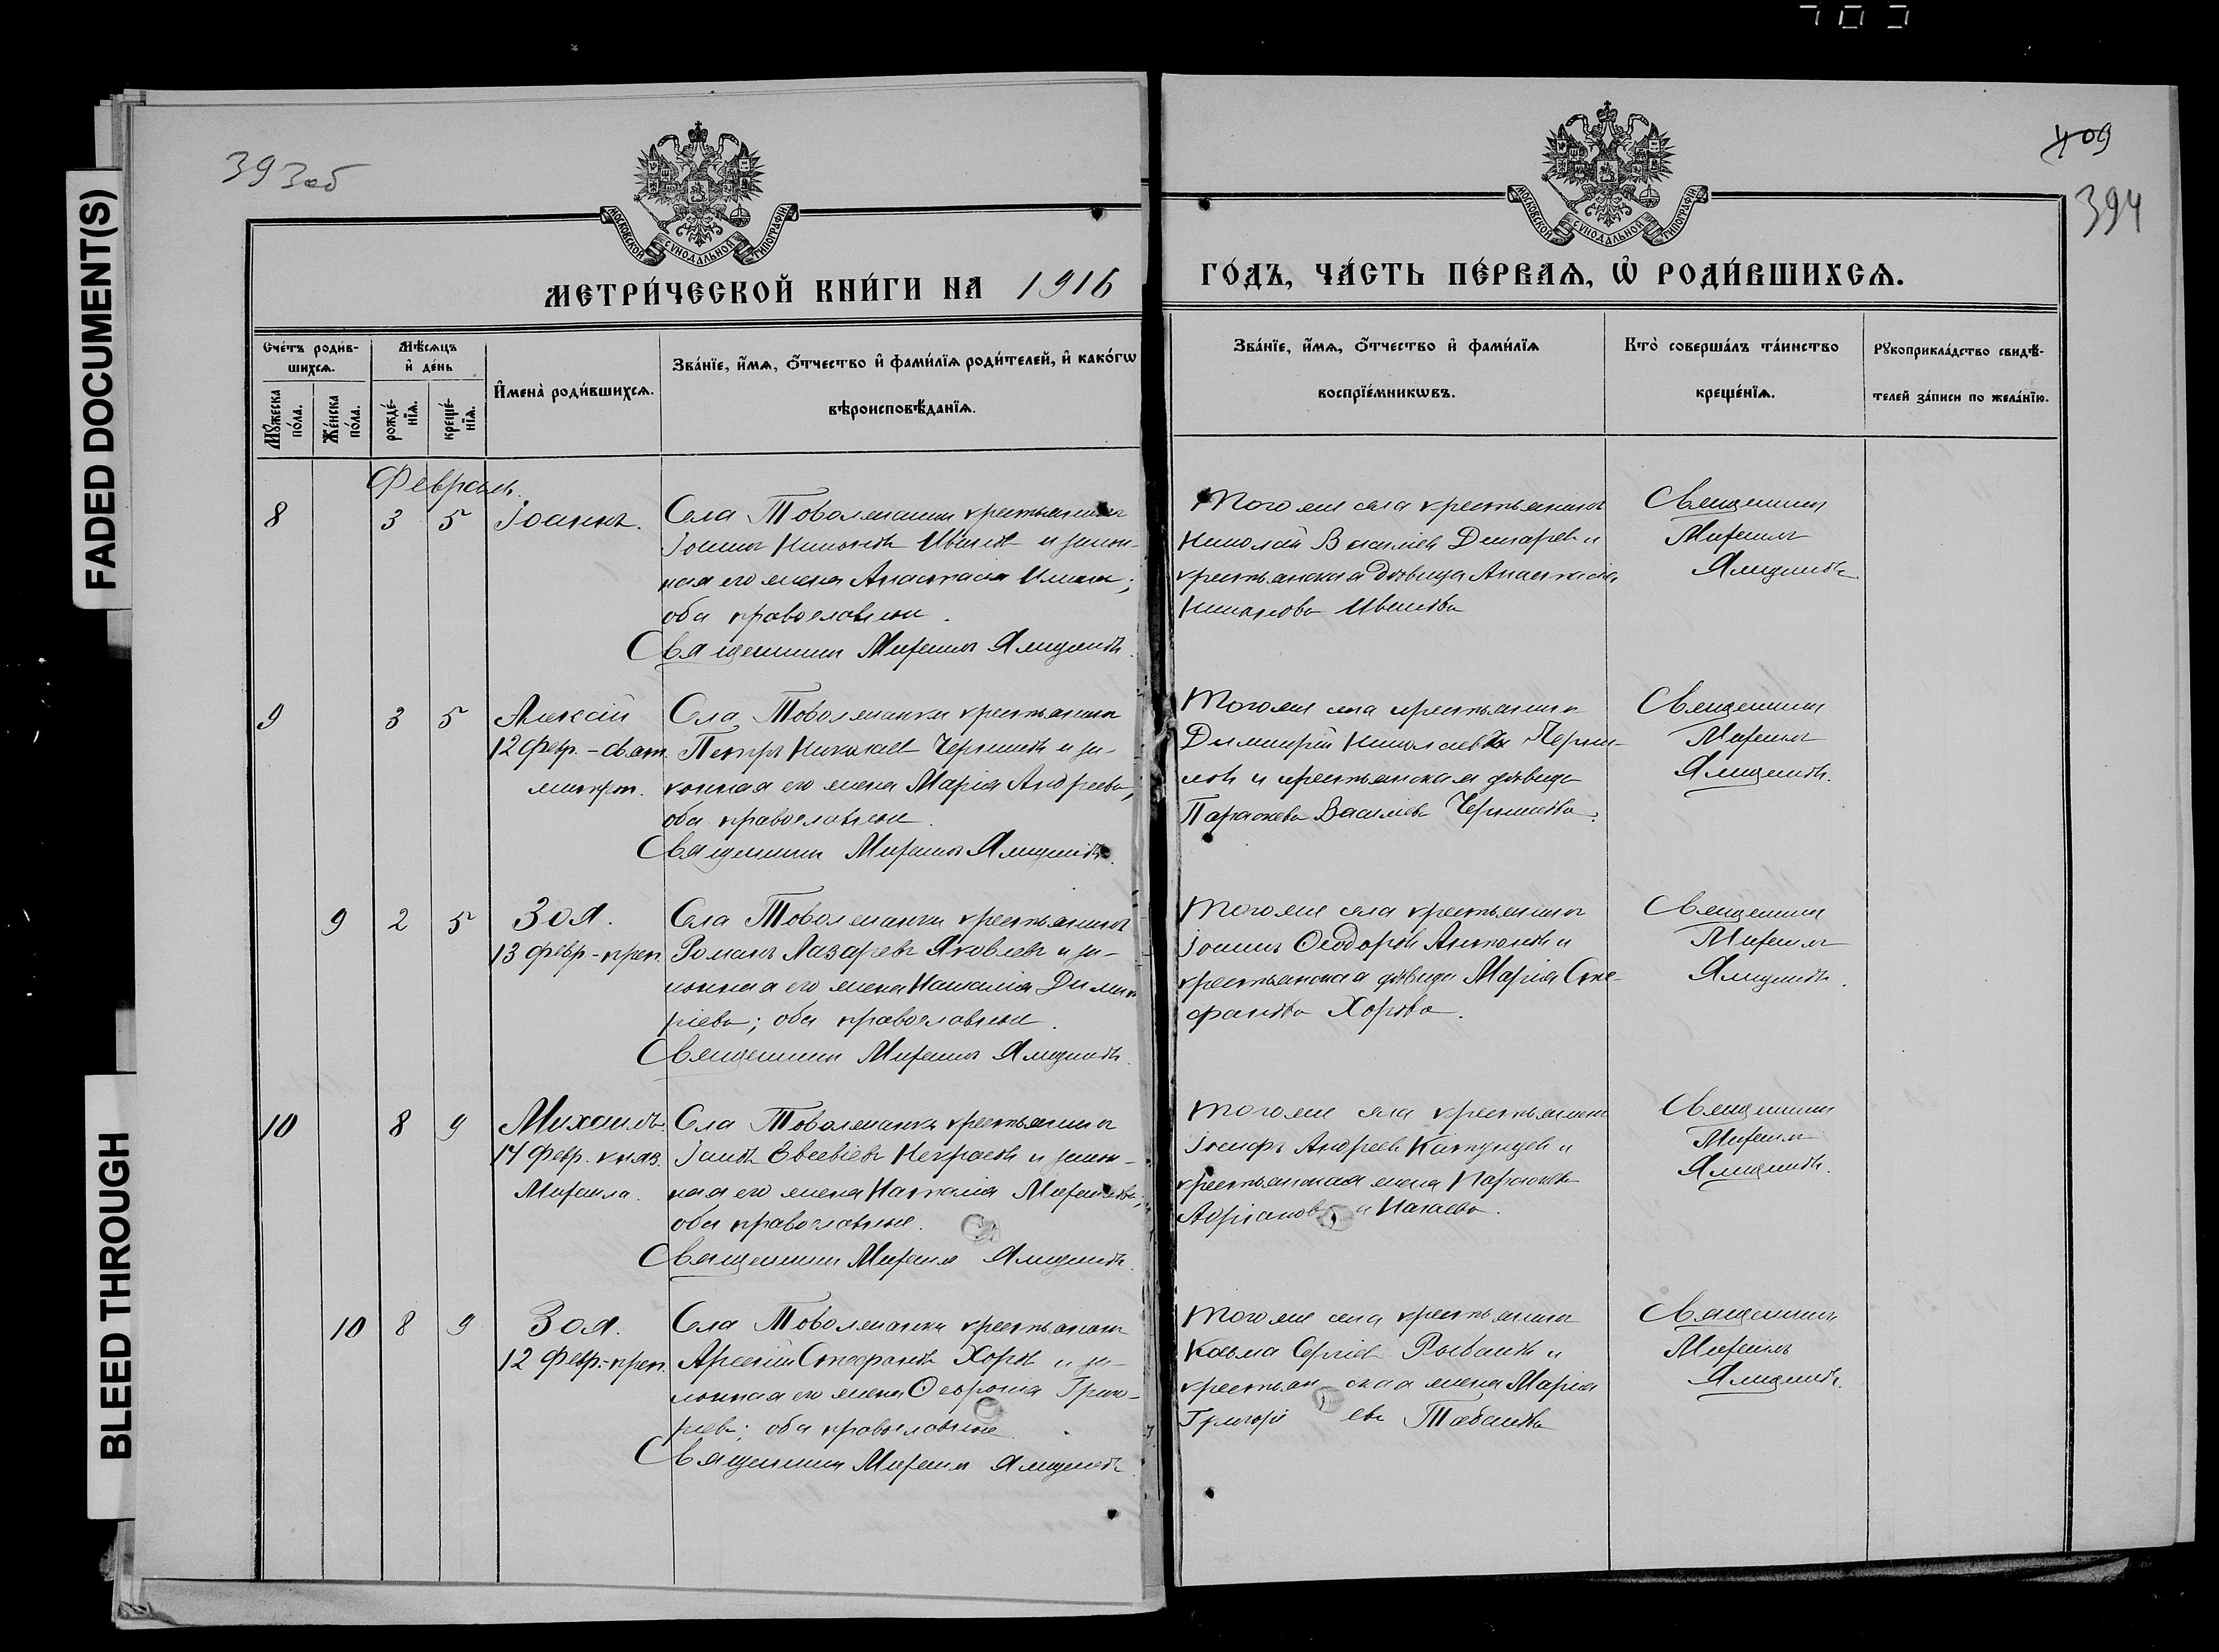 FADED DOCUMENT(S)
BLEED THROUGH
393об
409
394
МОСКОВСКОЙ СѴНОДАЛЬНОЙ ТИПОГРАФІИ
МОСКОВСКОЙ СѴНОДАЛЬНОЙ ТИПОГРАФІИ
МЕТРИ́ЧЕСКОЙ КНИ́ГИ НА 1916
ГО́ДЪ, ЧА́СТЬ ПЕ́РВАѦ, Ѡ҆ РОДИ́ВШИХСѦ.
Сче́тъ роди́в-
шихсѧ.
Мꙋ́жеска по́ла.
Же́нска по́ла.
Мѣ́сѧцъ
и҆ де́нь
рожде́-
нїѧ.
креще́-
нїѧ.
И҆мена̀ роди́вшихсѧ.
Зва́нїе, и҆́мѧ, ѻ҆́тчество и҆ фами́лїѧ роди́телей, и҆ како́гѡ
вѣроисповѣ́данїѧ.
Зва́нїе, и҆́мѧ, ѻ҆́тчество и҆ фами́лїѧ
воспрїе́мникѡвъ.
Кто̀ соверша́лъ та́инство
креще́нїѧ.
Рꙋкоприкла́дство свидѣ́-
телей за́писи по жела́нїю.
Февраль.
8 3 5 Іоаннъ.
Села Товолжанки крестьянинъ
и закон-
ная его жена Анастасія
оба православные.
Священникъ Михаилъ Ямщиковъ.
Того же села крестьянинъ
Николай Василіевъ и
крестьянская дѣвица Анастасія
Священникъ
Михаилъ
Ямщиковъ.
9 3 5 Алексій
12 Февр. – свят.
митроп.
Села Товолжанки крестьянинъ
Петръ Николаевъ Черниковъ и за-
конная его жена Марія Андреева,
оба православные.
Священникъ Михаилъ Ямщиковъ.
Того же села крестьянинъ
Димитрій Николаевъ Черни-
ковъ и крестьянская дѣвица
Параскева Василіева Черникова.
Священникъ
Михаилъ
Ямщиковъ.
9 2 5 Зоя.
13 февр – преп.
Села Товолжанки крестьянинъ
Романъ Лазаревъ Яковлевъ и за-
конная его жена Наталія Димит-
ріева; оба православные.
Священникъ Михаилъ Ямщиковъ.
Того же села крестьянинъ
Іоаннъ Ѳеодоровъ Антоновъ и
крестьянская дѣвица Марія Сте-
фанова Хорова.
Священникъ
Михаилъ
Ямщиковъ.
10 8 9 Михаилъ.
14 Февр. княз.
Михаила.
Села Товолжанки крестьянинъ
Іаковъ Евсевіевъ Некрасовъ и закон-
ная его жена Наталія Михаилова;
оба православные.
Священникъ Михаилъ Ямщиковъ.
Того же села крестьянинъ
Іосифъ Андреевъ и
крестьянская жена Параскева
Адріанова
Священникъ
Михаилъ
Ямщиковъ.
10 8 9 Зоя.
12 Февр.-преп.
Села Товолжанки крестьянинъ
Арсеній Стефановъ Хоровъ и за-
конная его жена Ѳевронія Григо-
ріева; оба православные.
Священникъ Михаилъ Ямщиковъ.
Того же села крестьянинъ
Косьма Сергіевъ Рыбаковъ и
крестьянская жена Марія
Григоріева
Священникъ
Михаилъ
Ямщиковъ.